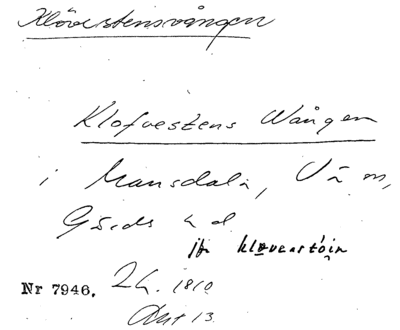 Klövestensvången
Klofvestens Wången
i Mansdala, Vä sn,
Gärds hd
jfr kløverstöin
Nr 7946. 2 h. 1810
Akt 13